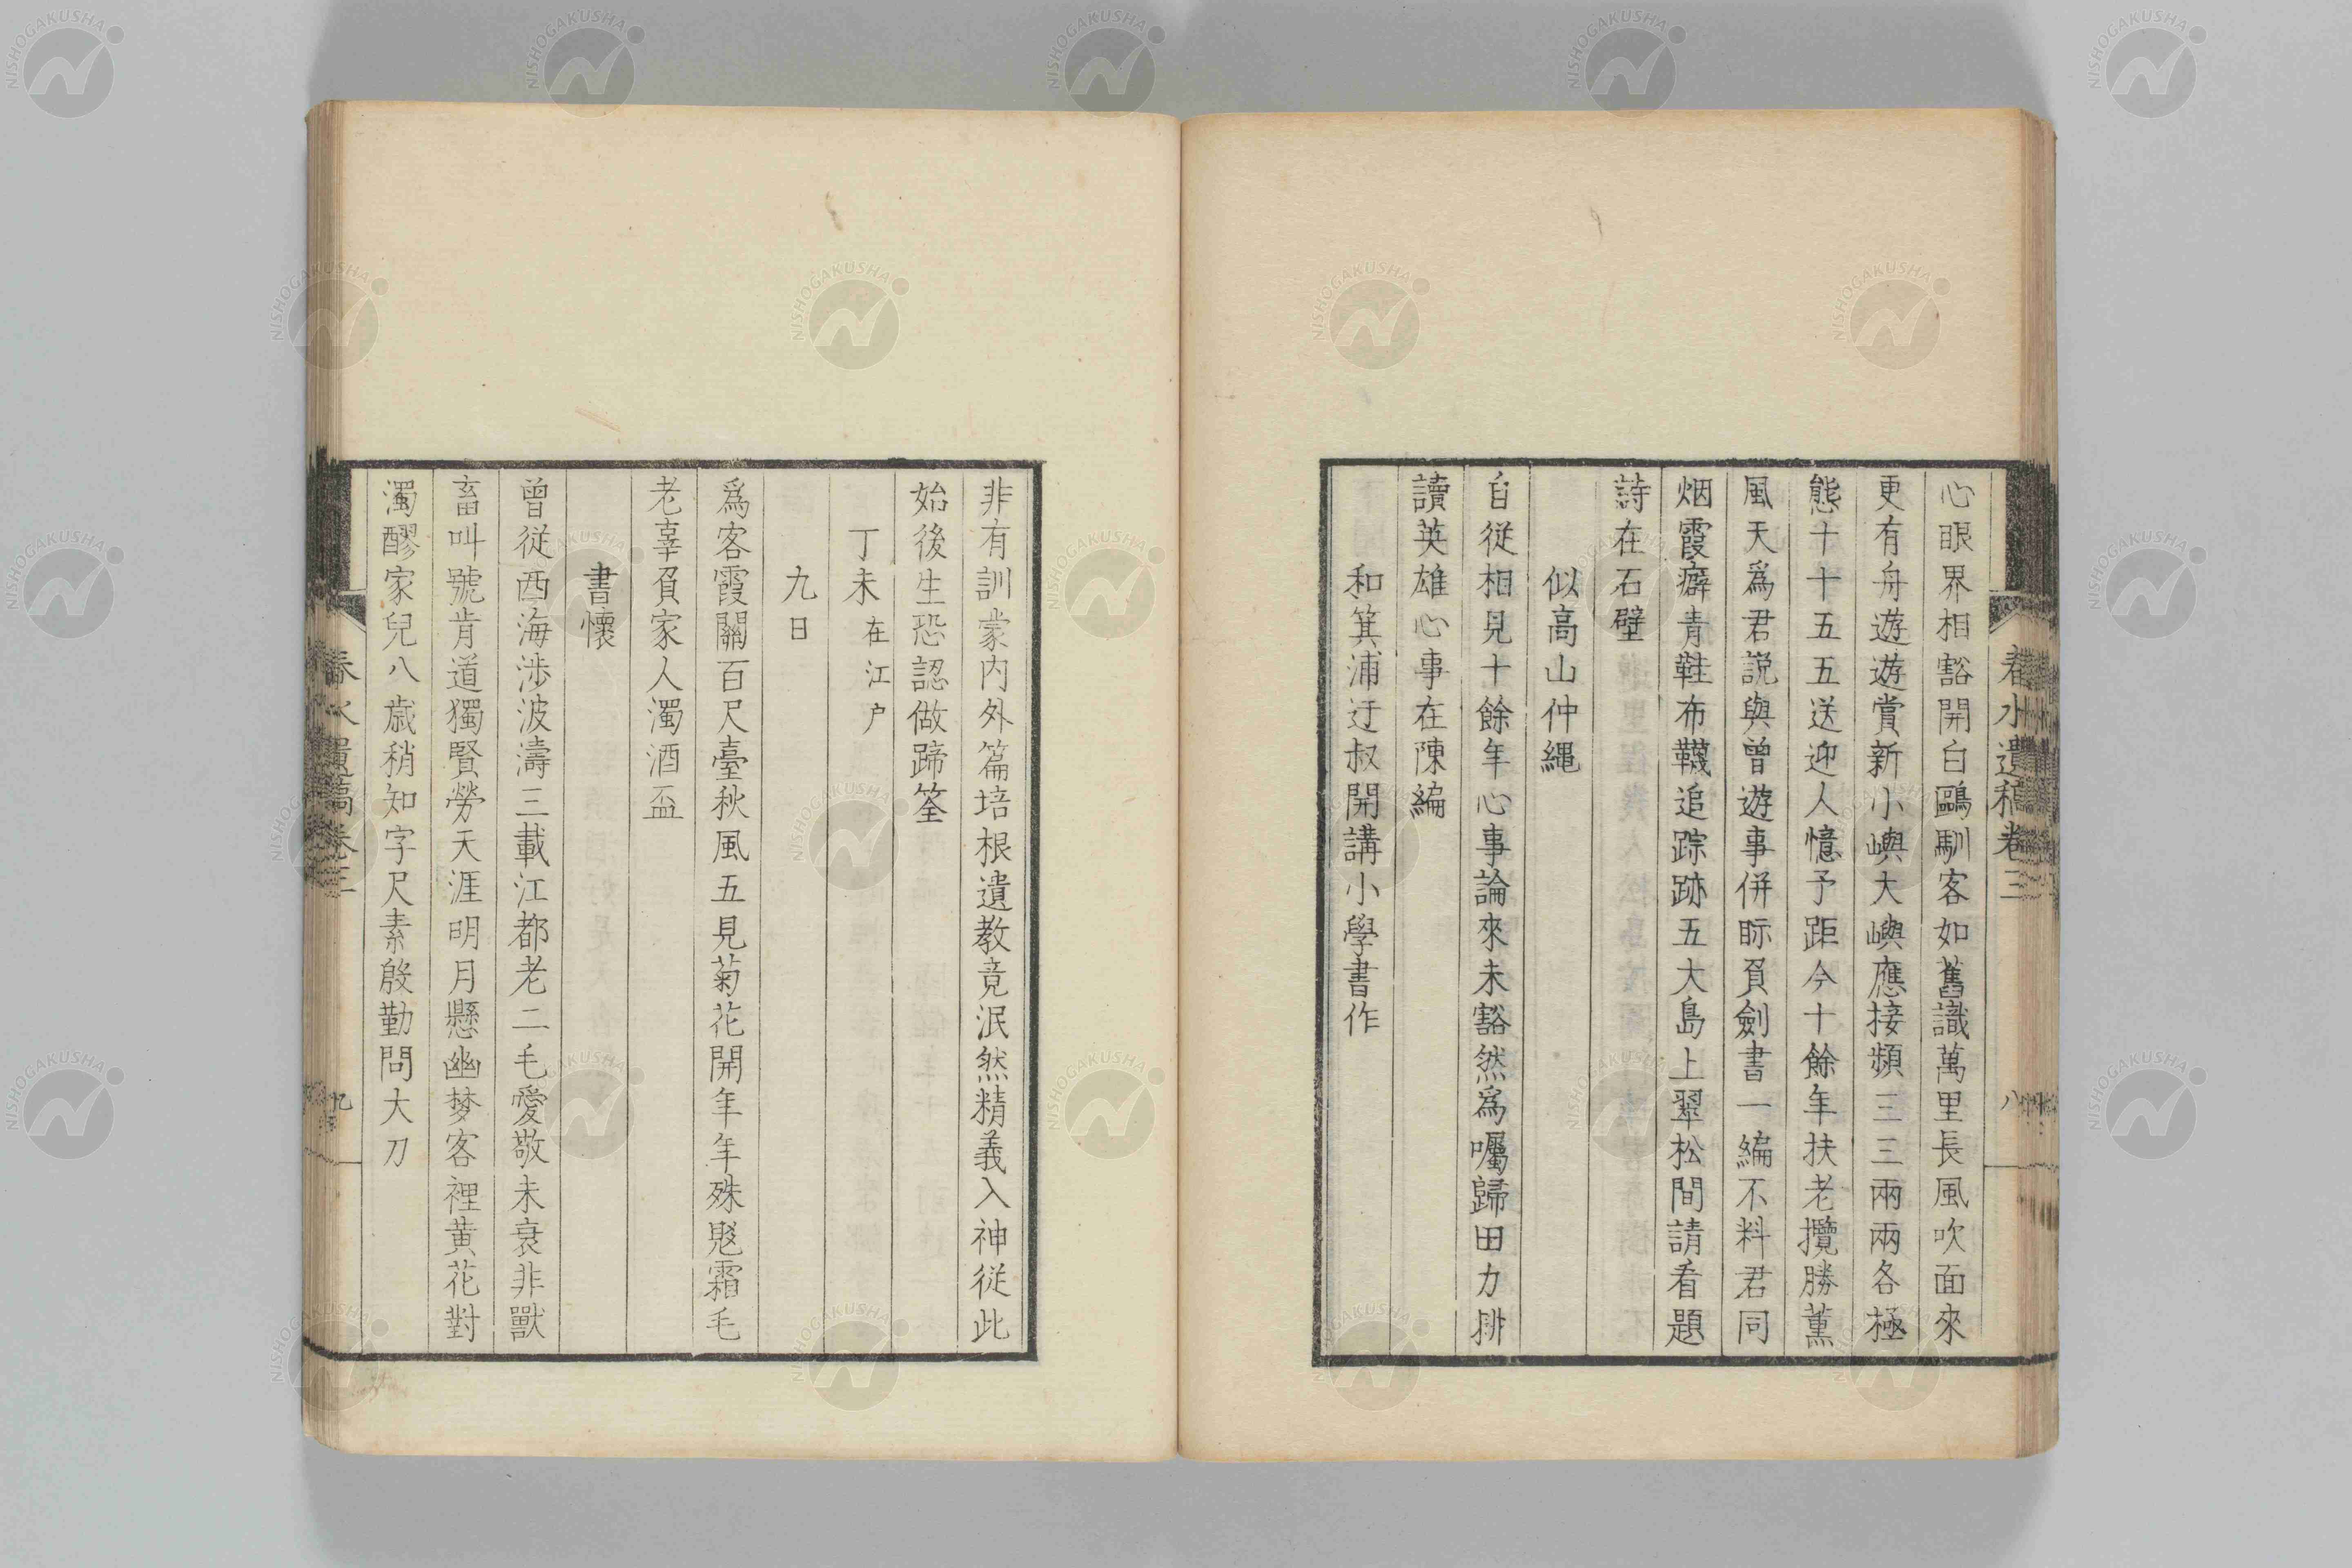 春水遺稿卷三
八
心眼界相豁開白鷗馴客如舊識萬里長風吹面來
更有舟遊遊賞新小嶼大嶼應接頻三三兩兩各極
態十十五五送迎人憶予距今十餘年扶老攬勝薫
風天爲君説與曾遊事併眎負劍書一編不料君同
烟霞癖青鞋布韈追踪跡五大島上翠松間請看題
詩在石壁
似高山仲縄
自從相見十餘年心事論來未豁然爲囑歸田力排
讀英雄心事在陳編
和箕浦迂叔開講小學書作
非有訓蒙内外篇培根遺教竟泯然精義入神從此
始後生恐認做蹄筌
丁未在江戸
九日
爲客霞關百尺臺秋風五見菊花開年年殊愳霜毛
老辜負家人濁酒盃
書懷
曾從西海渉波濤三載江都老二毛愛敬未衰非獸
畜叫號肯道獨賢勞天涯明月懸幽梦客裡黄花對
濁醪家兒八歳稍知字尺素殷勤問大刀
春水遺稿卷三
九
NISHOGAKUSHA